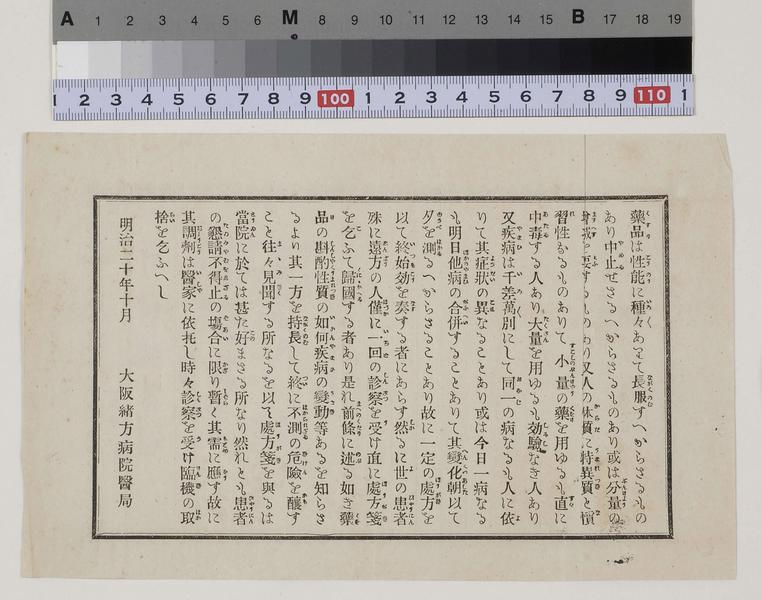 A 1 2 3 4 5 6 M 8 9 10 11 12 13 14 15 B 17 18 19
1 2 3 4 5 6 7 8 9 100 1 2 3 4 5 6 7 8 9 110 1
藥品は性能に種々ありて長服すへからさるもの
あり中止せさるへからさるものあり或は分量の
増減を要するものあり又人の体質に特異質と慣
習性あるものありて小量の藥を用ゆるも直に
中毒する人あり大量を用ゆるも効驗なき人あり
又疾病は千差萬別にして同一の病なるも人に依
りて其症狀の異なることあり或は今日一病なる
も明日他病の合併することありて其變化朝以て
夕を測るへからさることあり故に一定の處方を
以て終始効を奏する者にあらす然るに世の患者
殊に遠方の人僅に一回の診察を受け直に處方箋
を乞ふて歸國する者あり是れ前條に述る如き藥
品の斟酌性質の如何疾病の變動等あるを知らさ
るより其一方を持長して終に不測の危險を釀す
こと往々見聞する所なるを以て處方箋を與るは
當院に於ては甚た好まさる所なり然れとも患者
の懇請不得止の塲合に限り暫く其需に應す故に
其調劑は醫家に依托し時々診察を受け臨機の取
捨を乞ふへし
明治二十年十月 大阪緒方病院醫局